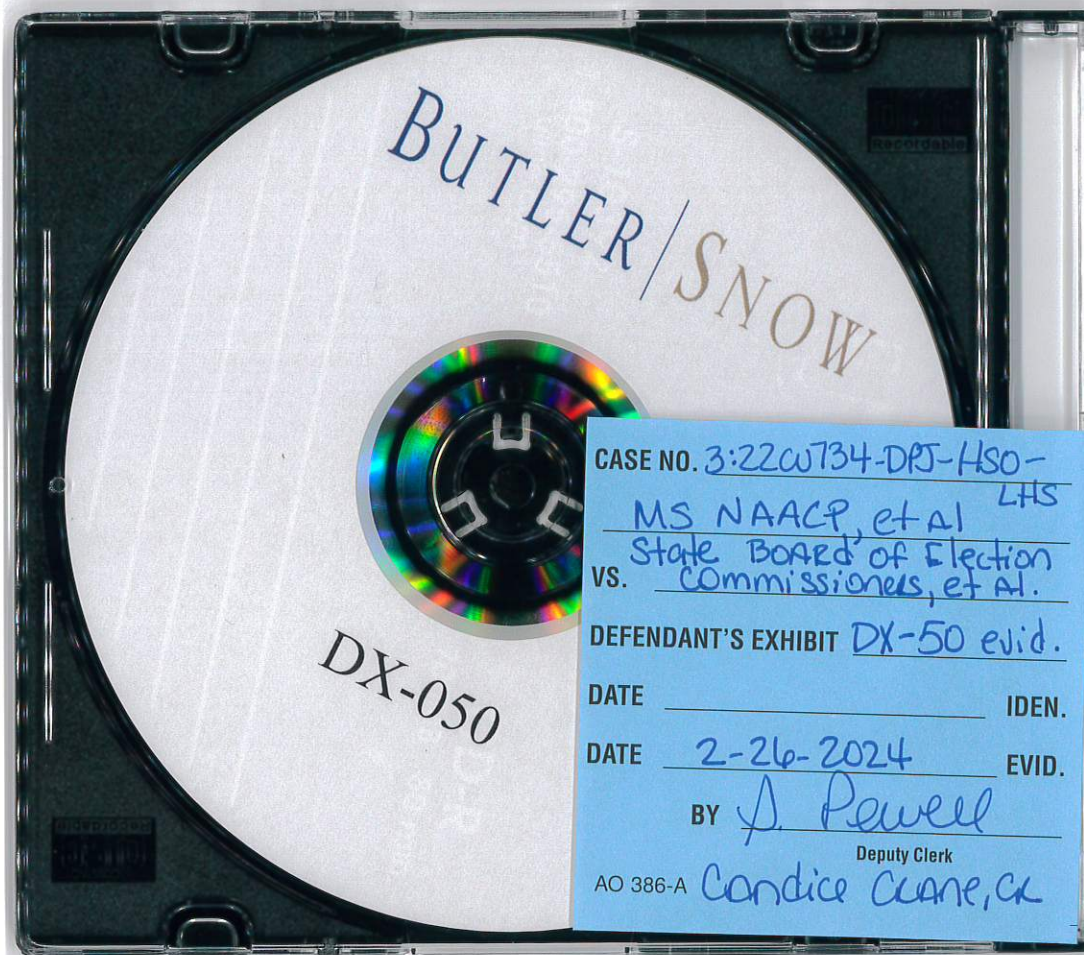 BUTLER | SNOW
Recordable
DX-050
CASE NO. 3:22CV734-DPJ-HSO-
LHS
MS NAACP, et Al
State BOARD of Election
VS. Commissioners, et Al.
DEFENDANT'S EXHIBIT DX-50 evid.
DATE IDEN.
DATE 2-26-2024 EVID.
BY
Deputy Clerk
AO 386-A Candice Crane, CR